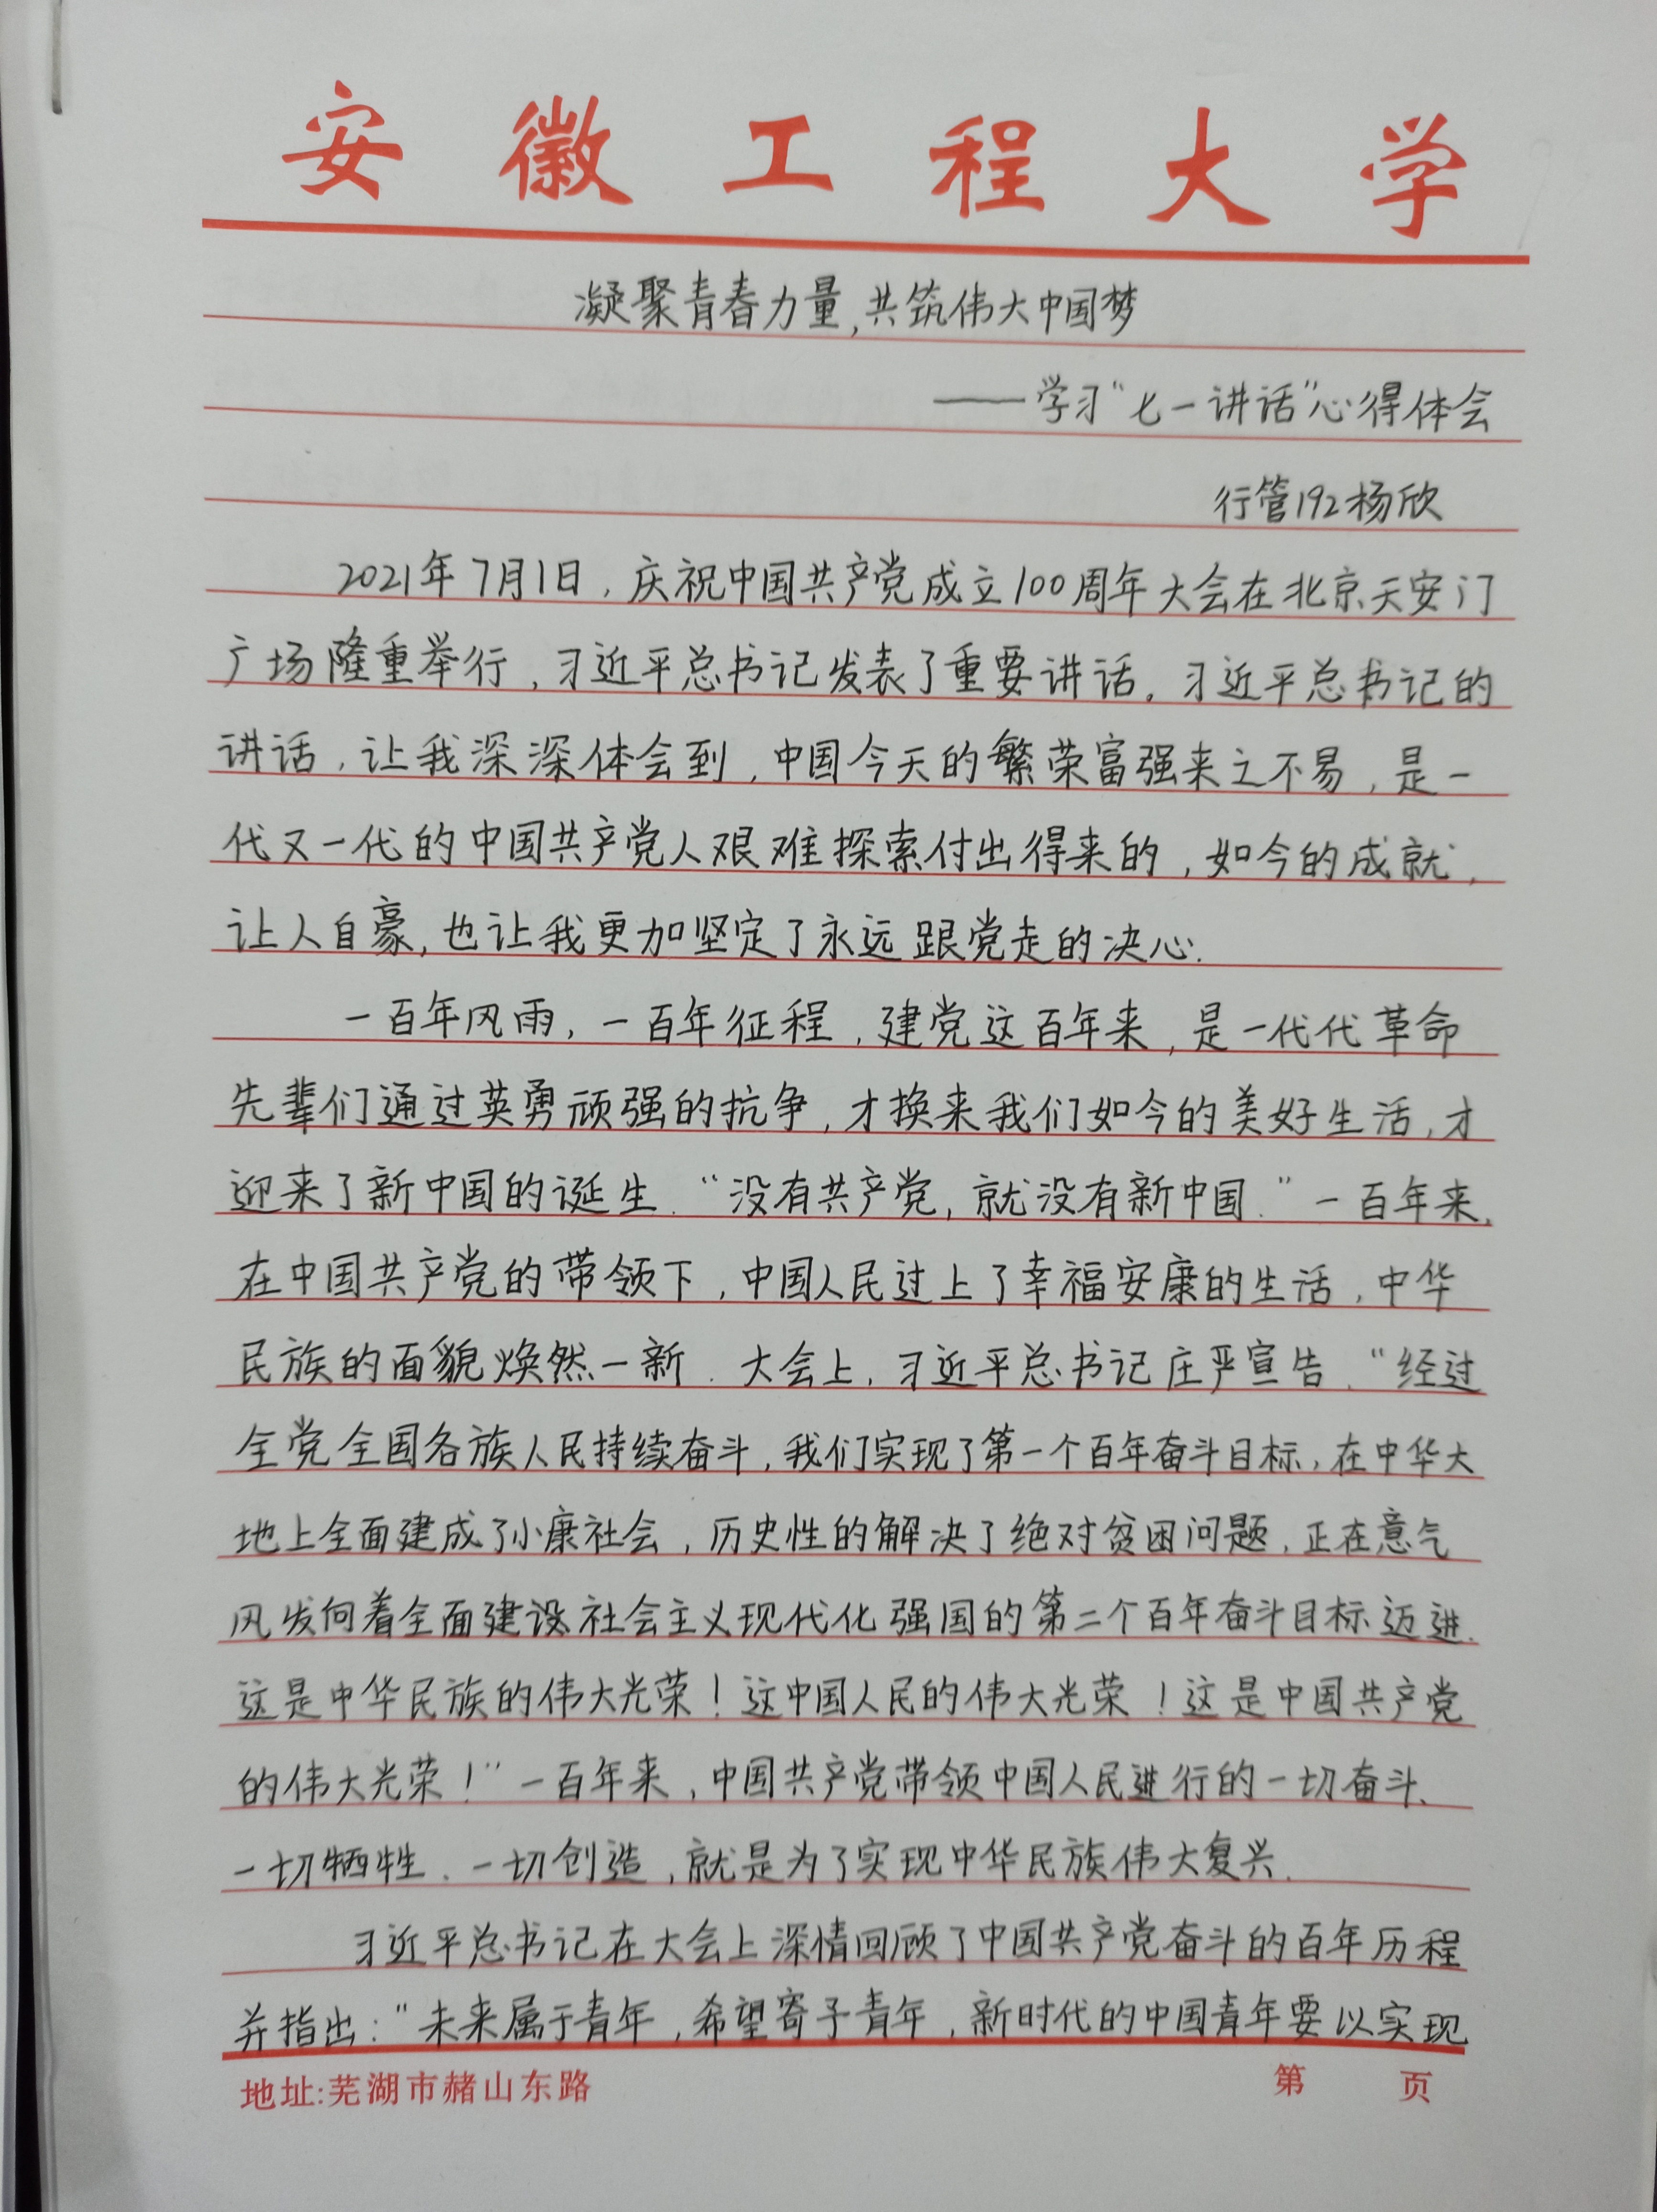 安徽工程大学
凝聚青春力量,共筑伟大中国梦
——学习“七一讲话”心得体会
行管192杨欣
2021年7月1日,庆祝中国共产党成立100周年大会在北京天安门
广场隆重举行,习近平总书记发表了重要讲话。习近平总书记的
讲话,让我深深体会到,中国今天的繁荣富强来之不易,是一
代又一代的中国共产党人艰难探索付出得来的,如今的成就,
让人自豪,也让我更加坚定了永远跟党走的决心.
一百年风雨,一百年征程,建党这百年来,是一代代革命
先辈们通过英勇顽强的抗争,才换来我们如今的美好生活,才
迎来了新中国的诞生.“没有共产党,就没有新中国.”一百年来,
在中国共产党的带领下,中国人民过上了幸福安康的生活,中华
民族的面貌焕然一新.大会上,习近平总书记庄严宣告.“经过
全党全国各族人民持续奋斗,我们实现了第一个百年奋斗目标,在中华大
地上全面建成了小康社会,历史性的解决了绝对贫困问题,正在意气
风发向着全面建设社会主义现代化强国的第二个百年奋斗目标迈进.
这是中华民族的伟大光荣!这中国人民的伟大光荣!这是中国共产党
的伟大光荣!”一百年来,中国共产党带领中国人民进行的一切奋斗、
一切牺牲、一切创造,就是为了实现中华民族伟大复兴.
习近平总书记在大会上深情回顾了中国共产党奋斗的百年历程
并指出:“未来属于青年,希望寄予青年,新时代的中国青年要以实现
地址:芜湖市赭山东路 第 页